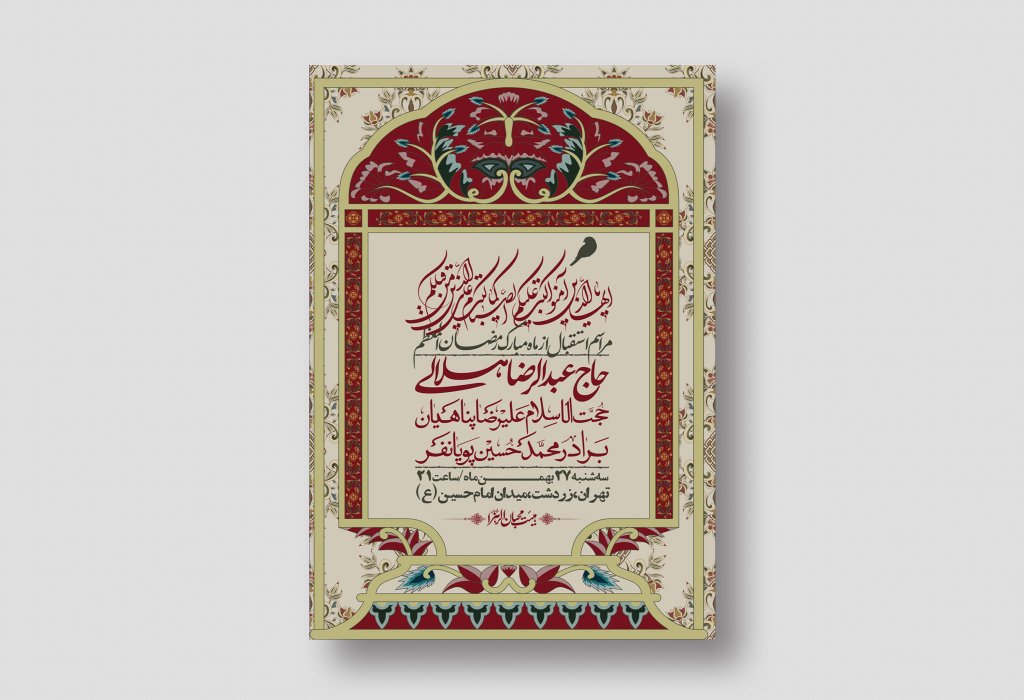 یایها الذین آمنوا کتب علیکم الصیام کما کتب علی الذین من قبلکم
مراسم استقبال از ماه مبارک رمضان المعظم
حاج عبدالرضا هلالی
حُجَّت الاسلام علیرضا پناهیان
برادر محمّد حُسین پویانفر
سه‌شنبه ۲۷ بهمن ماه/ساعت ۲۱
تهران، زردشت، میدان امام حسین (ع)
هیئت محبان الزهرا